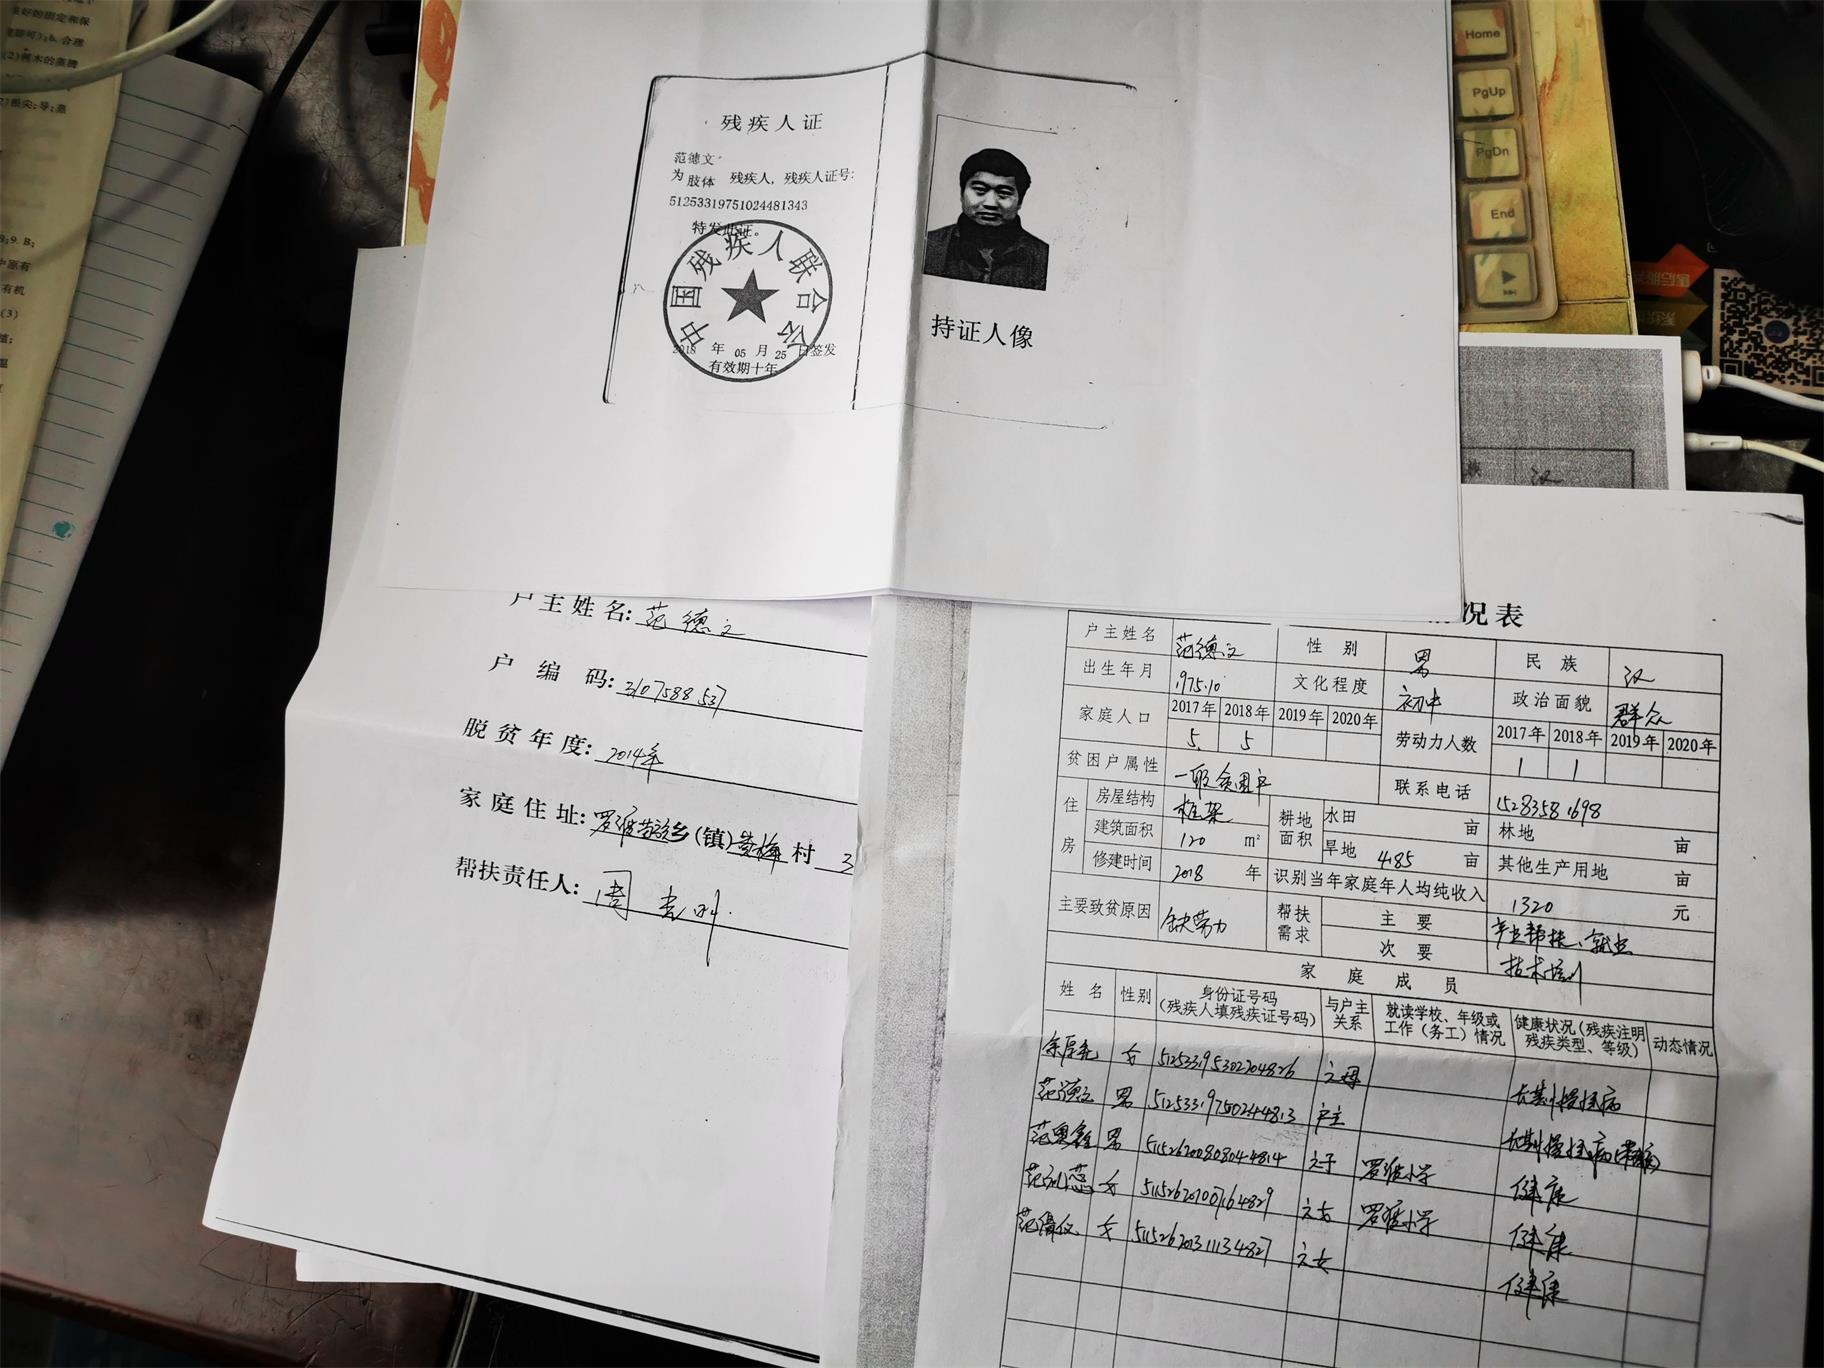 残疾人证
范德文
为 肢体 残疾人，残疾人证号：
51253319751024481343
特发此证。
中国残疾人联合会
2018 年 05 月 25 日签发
有效期十年
持证人像
Home
PgUp
PgDn
End
户主姓名：范德文
户编码：3107588537
脱贫年度：2014年
家庭住址：乡（镇） 村 3
帮扶责任人：周
况表
户主姓名 范德文 性别 男 民族 汉
出生年月 1975.10 文化程度 初中 政治面貌 群众
家庭人口 2017年 2018年 2019年 2020年 劳动力人数 2017年 2018年 2019年 2020年
5 5 1 1
贫困户属性 一般贫困户 联系电话 15283581698
住房 房屋结构 框架 耕地面积 水田 亩 林地 亩
建筑面积 120 m² 旱地 4.85 亩 其他生产用地 亩
修建时间 2018 年 识别当年家庭年人均纯收入 1320 元
主要致贫原因 缺劳力 帮扶需求 主要 产业帮扶、就业
次要 技术培训
家庭成员
姓名 性别 身份证号码（残疾人填残疾证号码） 与户主关系 就读学校、年级或工作（务工）情况 健康状况（残疾注明残疾类型、等级） 动态情况
女 512533195302204826 之母 长期慢性病
范德文 男 户主 长期慢性病
男 511526200808044814 之子 罗维小学 健康
女 511526201007164829 之女 罗维小学 健康
女 511526201311134827 之女 健康